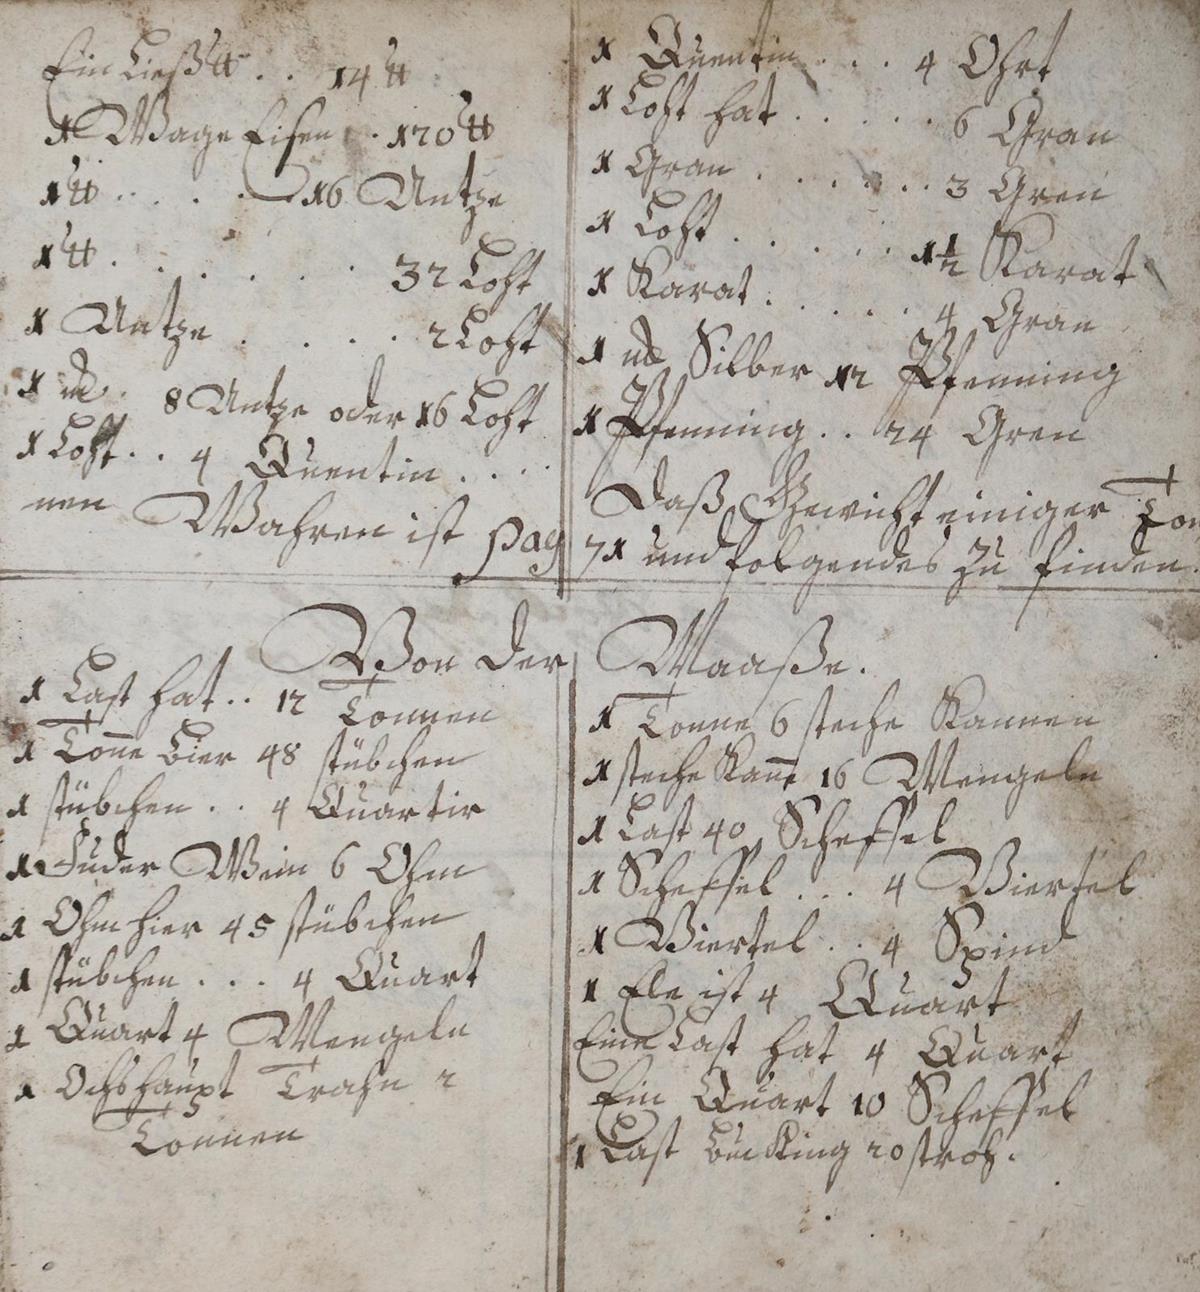 Ein Ließ ℔ . . 14 ℔
1 Wage Eisen . 120 ℔
1 ℔ . . . . 16 Untze
1 ℔ . . . . . . 32 Loht
1 Untze . . . . 2 Loht
1 . 8 Untze oder 16 Loht
1 Loht . . 4 Quentin . . . .
1 Quentin . . . 4 Ohrt
1 Loht hat . . . . . 6 Gran
1 Gran . . . . . . 3 Gren
1 Loht . . . . . 1½ Karat
1 Karat . . . . . 4 Gran
1 Silber 12 Pfenning
1 Pfenning . . 24 Gren
Daß Gewicht einiger Ton
nen Wahren ist pag
71 und folgendes zu finden.
Von der Maaße.
1 Last hat . . 12 Tonnen
1 Toñe Bier 48 stübchen
1 stübchen . . 4 Quartir
1 Fuder Wein 6 Ohm
1 Ohm hier 45 stübchen
1 stübchen . . . 4 Quart
1 Quart 4 Mengeln
1 Ochshaupt Trahn 2
Tonnen
1 Tonne 6 steche Kannen
1 steche Kañe 16 Mengeln
1 Last 40 Scheffel
1 Scheffel . . . 4 Viertel
1 Viertel . . 4 Spind
1 Ele ist 4 Quart
Eine Last hat 4 Quart
Ein Quart 10 Scheffel
1 Last Bücking 20 stroh.